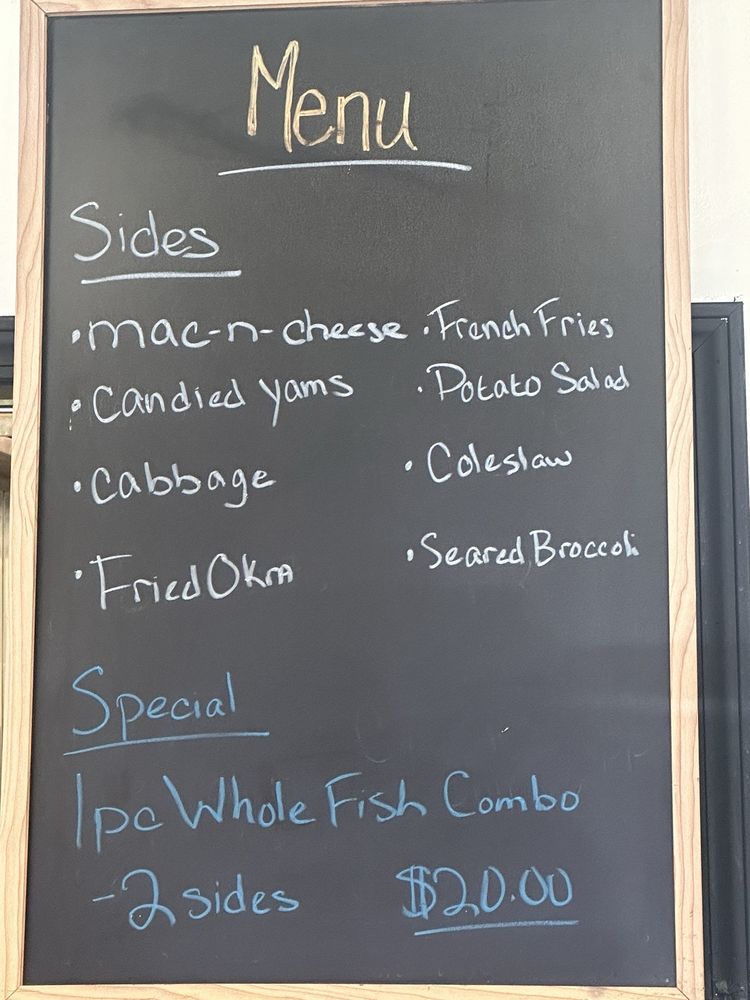 Menu
Sides
• mac-n-cheese • French Fries
• Candied yams • Potato Salad
• Cabbage • Coleslaw
• Fried Okra • Seared Broccoli
Special
1pc Whole Fish Combo
- 2 sides $20.00